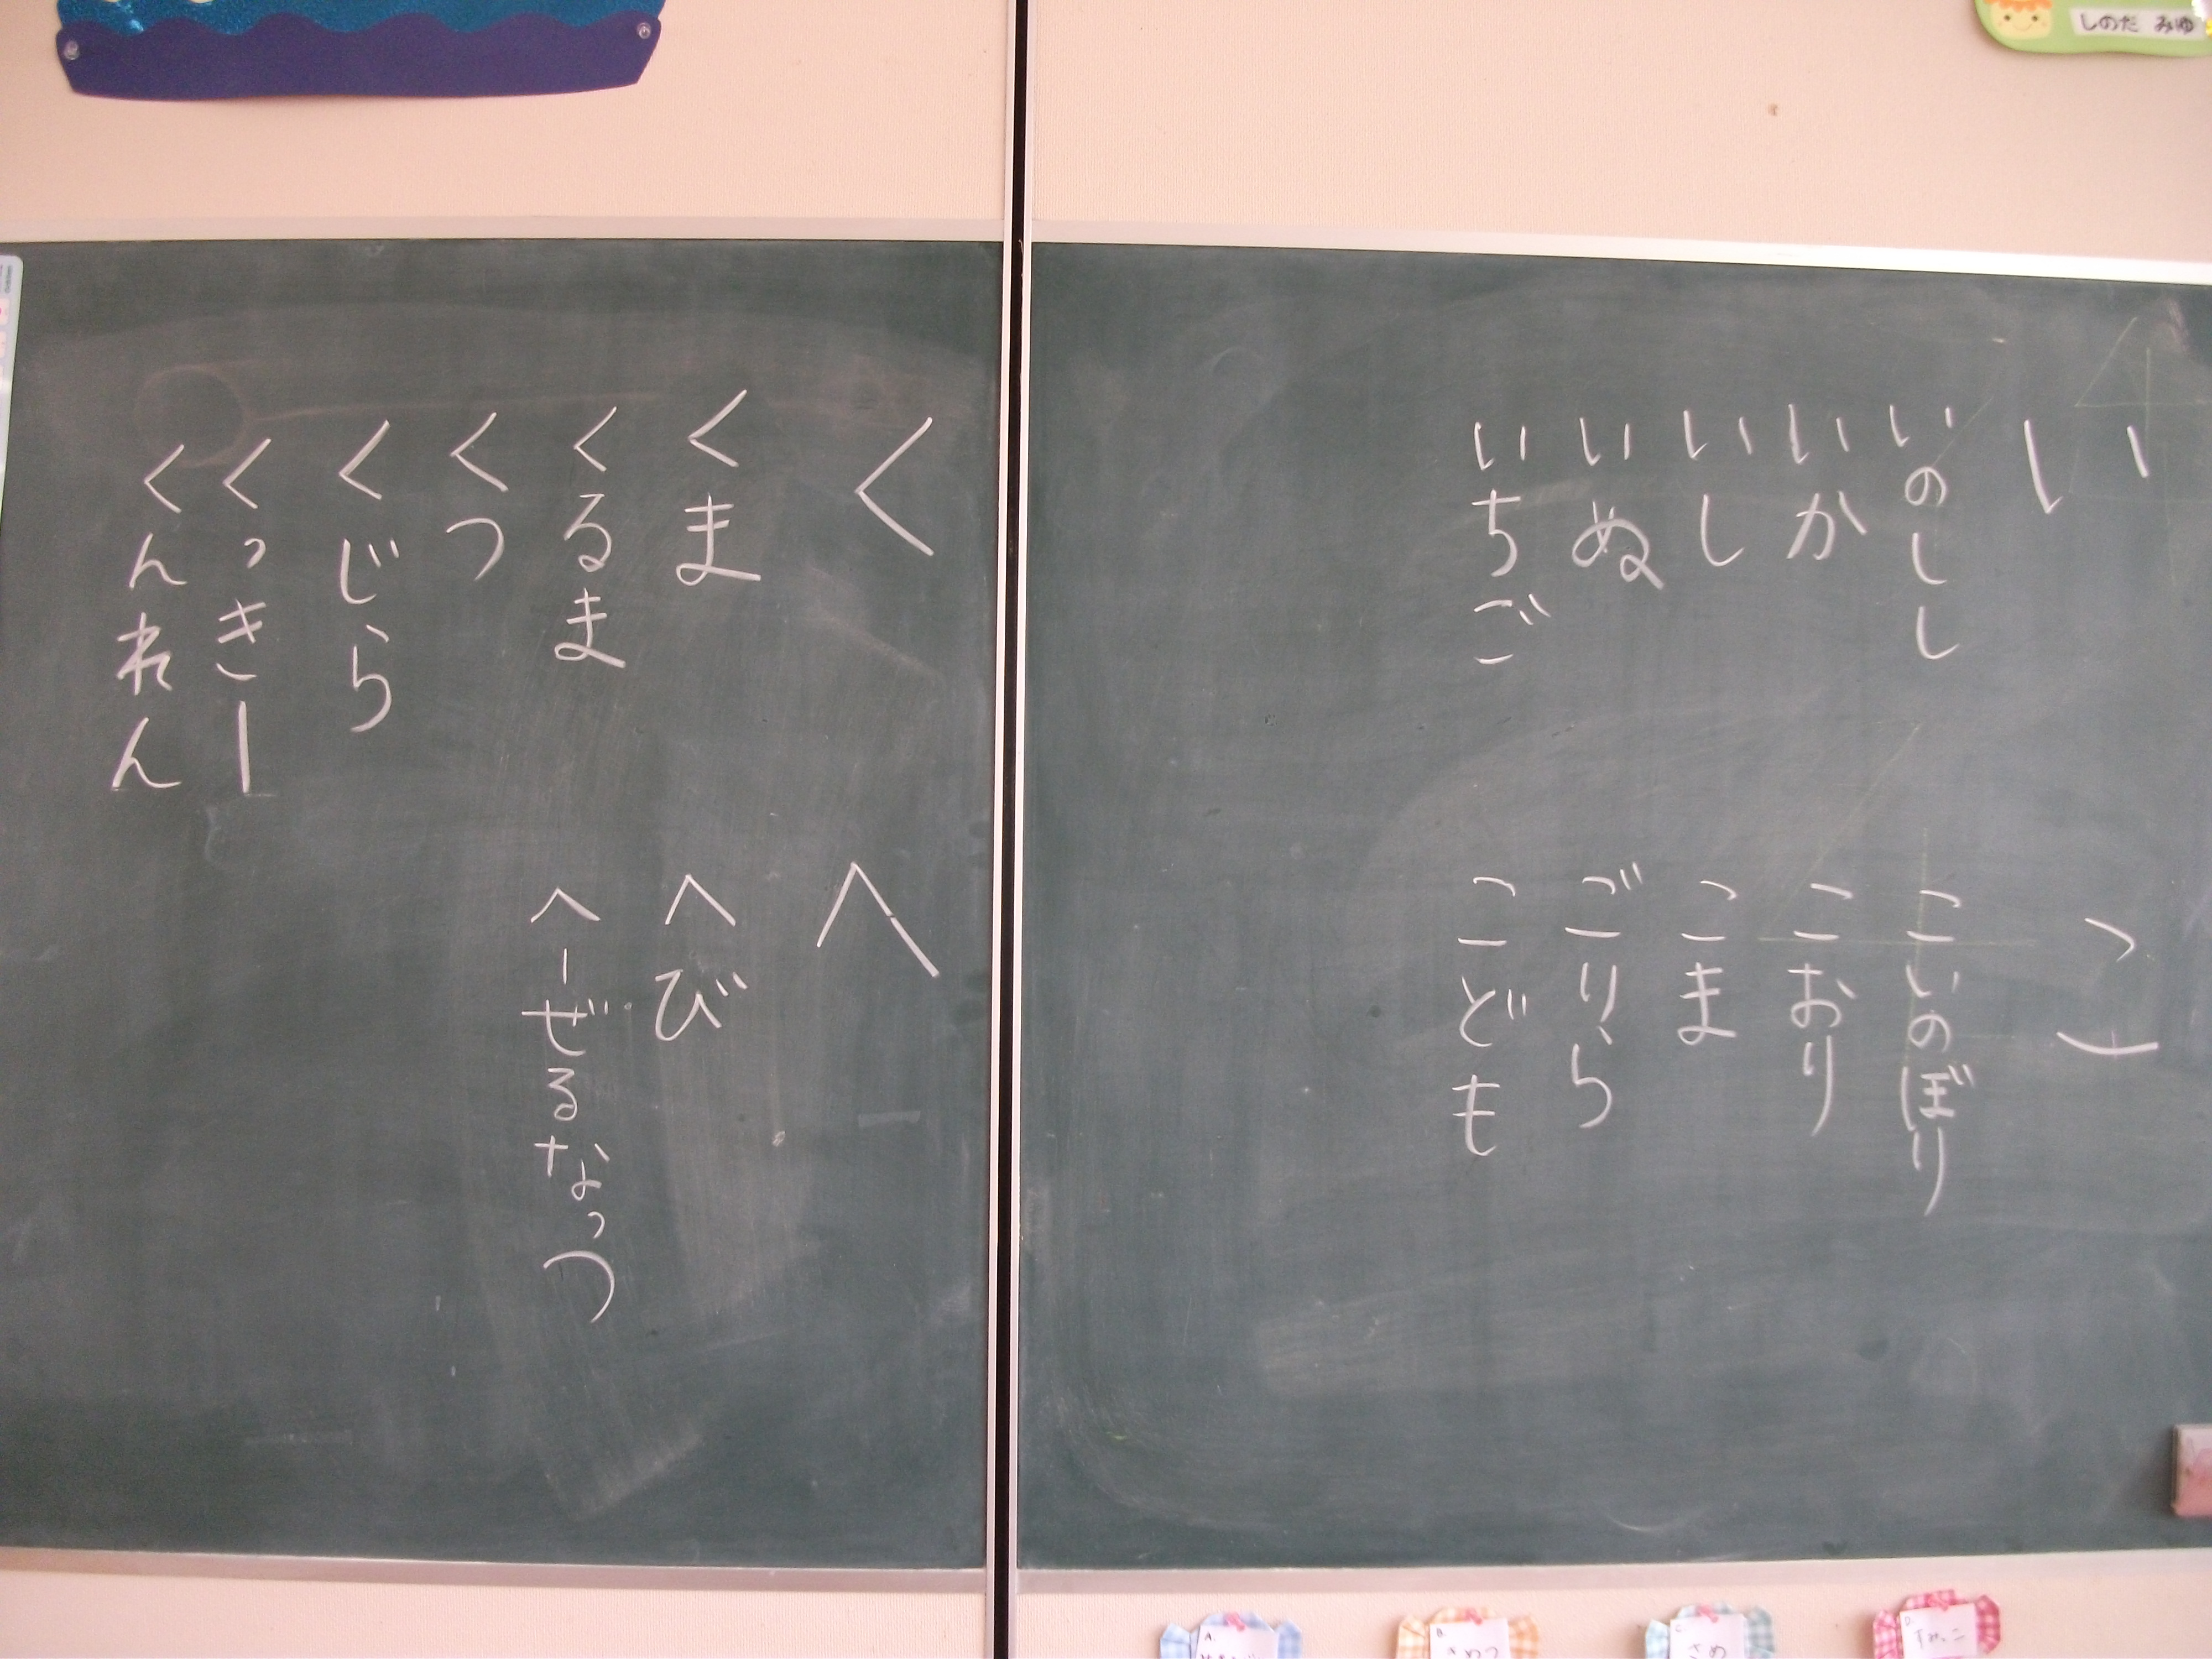 しのだ みゆ
い
いのしし
いか
いし
いぬ
いちご
こ
こいのぼり
こおり
こま
ごりら
こども
く
くま
くるま
くつ
くじら
くっきー
くんれん
へ
へび
へーぜるなっつ
A.
B.
C.
さめ
D.